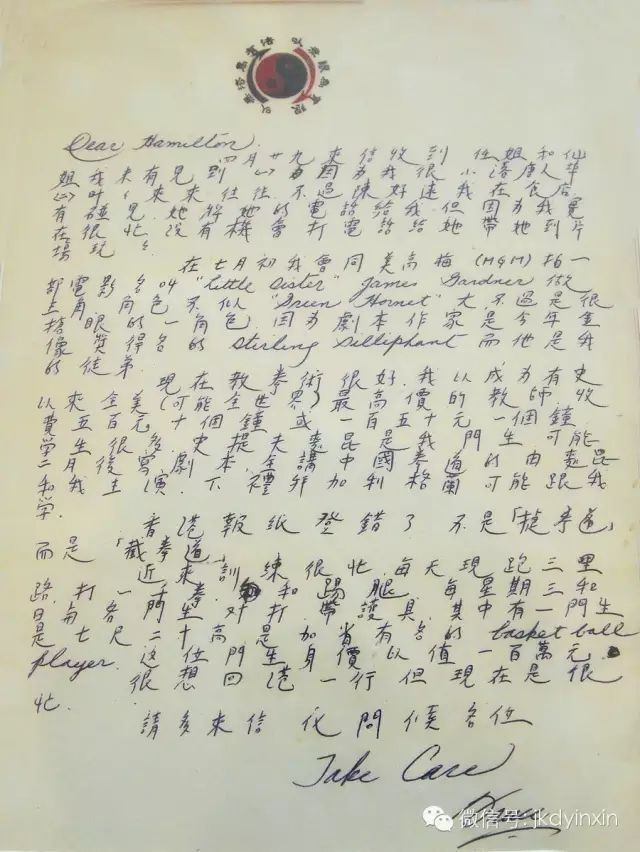 以無法為有法 以無限為有限
Dear Hamilton
四月廿九來信收到 伍姐和仙
姐我未有見到 為因為我很小落唐人埠
來來往往 不過陳好逑我在食店
有碰見 她將她的電話給我 但因為我實
在很忙 沒有機會打電話給她帶她到片
場玩玩
在七月初我會同美高梅 (MGM) 拍一
部電影名叫 "Little Sister" James Gardner 做
主角 角色不似 "Green Hornet" 大 不過是很
搶眼的一角色 因為劇本作家是今年金
像獎得名的 Sterling Silliphant 而他是我
的徒弟.
現在教拳術很好 我以成為有史
以來全美(可能全世界)最高價的教師 收
費五百元十個鐘或一百五十元一個鐘
學生很多 史提夫麥昆是我門生 可能
二月後寫劇本 全講中國拳道的由麥昆
和我主演. 下禮拜加利格蘭可能跟我
學.
香港報紙登錯了 不是「捷拳道」
而是「截拳道」
近來訓練很忙 每天現跑三里
路 打一千拳和踢腿 每星期三和
日與各門生對打 帶護具 其中有一門生
是七尺二寸高是加省有名的 basket ball
player. 这位門生身價以值一百萬元.
很想回港一行但現在是很
忙.
請多來信 代問候各位
Take Care
Bruce
微信号: jkdyinxin